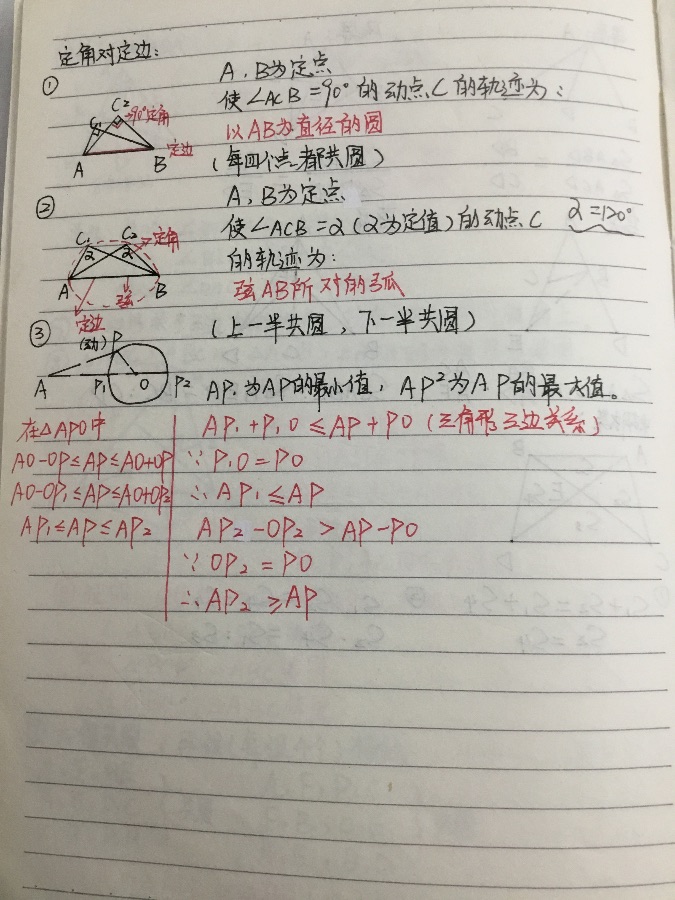 定角对定边:
① A、B为定点
使∠ACB=90°的动点C的轨迹为:
以AB为直径的圆
(每四个点都共圆)
C₁ C₂ 90°定角
A B 定边
② A、B为定点
使∠ACB=α(α为定值)的动点C α=120°
的轨迹为:
弦AB所对的弓弧
(上一半共圆,下一半共圆)
C₁ C₂ 定角
α α
A 弦 B
定边
③ (动) P
A P₁ O P₂
AP₁为AP的最小值,AP²为AP的最大值。
在△APO中
AO-OP≤AP≤AO+OP
AO-OP₁≤AP≤AO+OP₂
AP₁≤AP≤AP₂
AP₁+P₁O≤AP+PO(三角形三边关系)
∵P₁O=PO
∴AP₁≤AP
AP₂-OP₂>AP-PO
∵OP₂=PO
∴AP₂≥AP